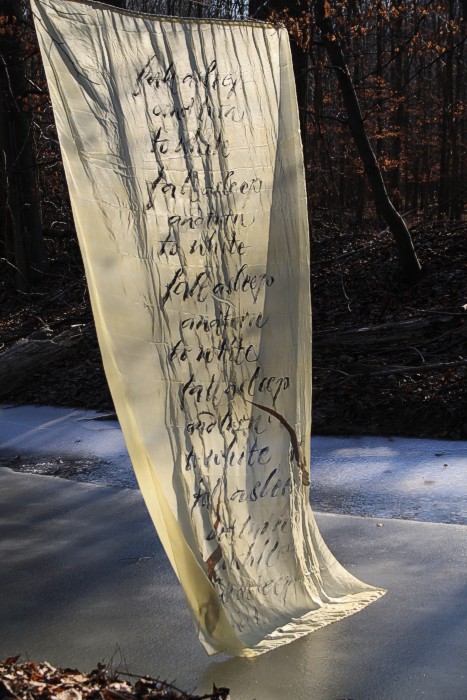 fall asleep
and turn
to white
fall asleep
and turn
to white
fall asleep
and turn
to white
fall asleep
and turn
to white
fall asleep
and turn
to white
asleep